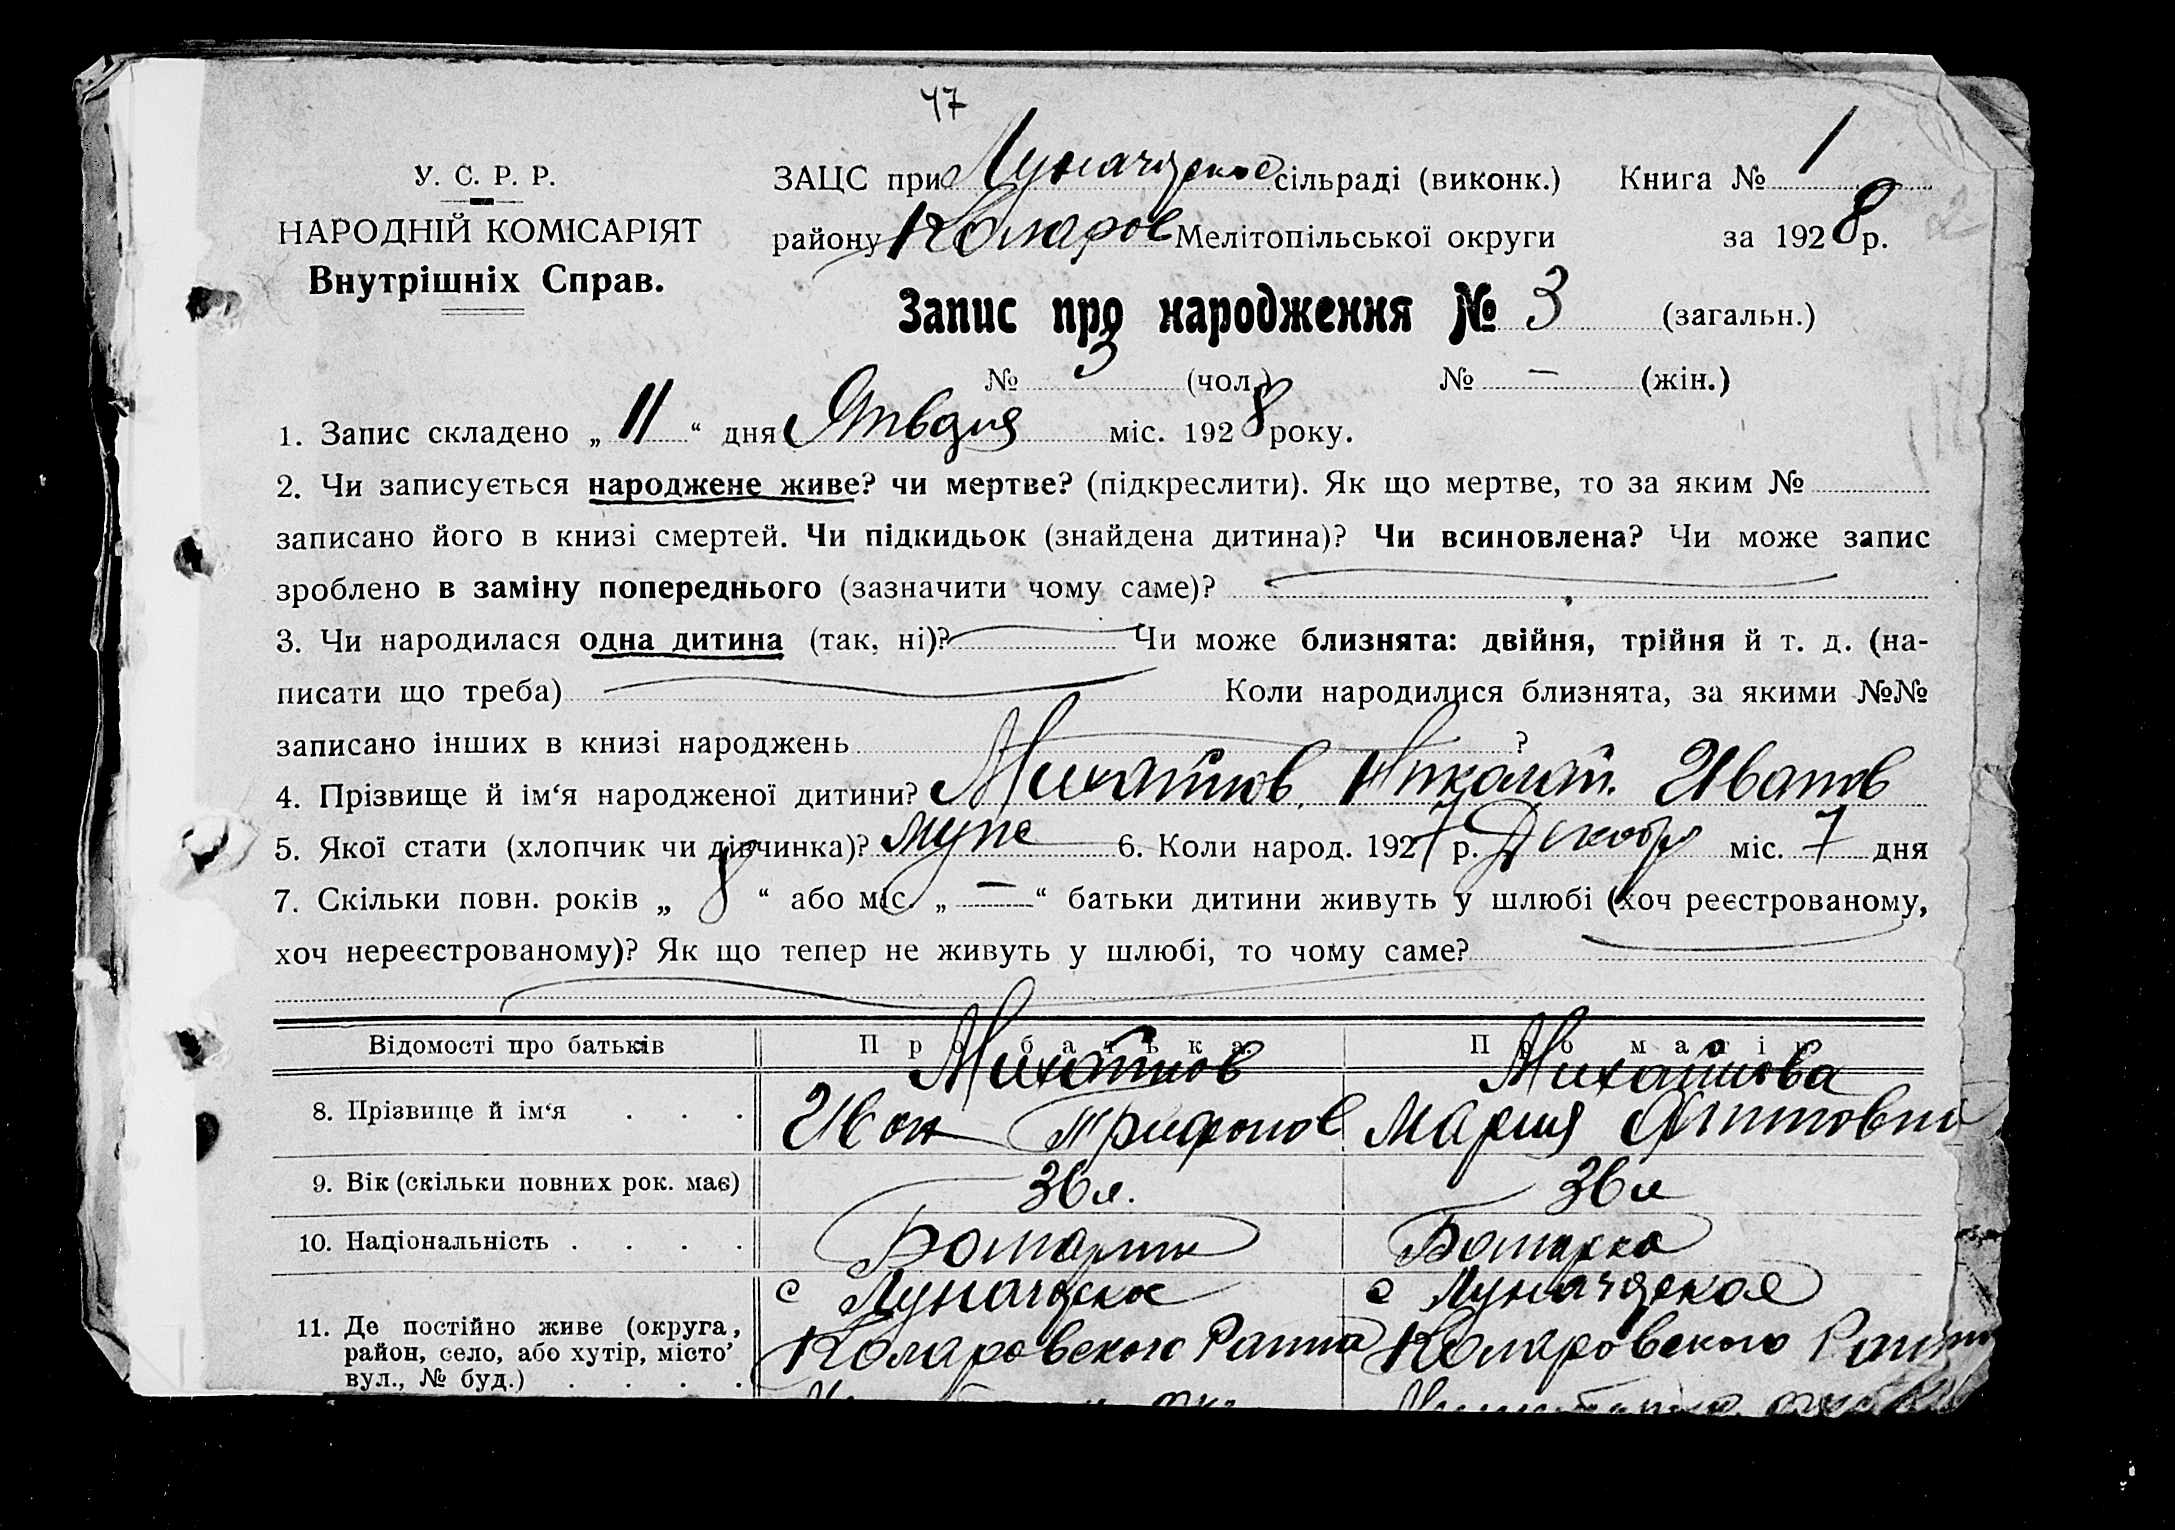 47
У. С. Р. Р.
НАРОДНІЙ КОМІСАРІЯТ
Внутрішніх Справ.
ЗАЦС при Луначарское сільраді (виконк.) Книга № 1
району Коларов Мелітопільської округи за 1928 р.
Запис про народження № 3 (загальн.)
№ 3 (чол.) № — (жін.)
1. Запис складено „ 11 “ дня Января міс. 1928 року.
2. Чи записується народжене живе? чи мертве? (підкреслити). Як що мертве, то за яким №
записано його в книзі смертей. Чи підкидьок (знайдена дитина)? Чи всиновлена? Чи може запис
зроблено в заміну попереднього (зазначити чому саме)?
3. Чи народилася одна дитина (так, ні)? Чи може близнята: двійня, трійня й т. д. (на-
писати що треба) Коли народилися близнята, за якими №№
записано інших в книзі народжень ?
4. Прізвище й ім‘я народженої дитини? Михайлов Николай Иванов
5. Якої стати (хлопчик чи дівчинка)? муж 6. Коли народ. 1927 р. Декабр міс. 7 дня
7. Скільки повн. років „ 8 “ або міс. „ — “ батьки дитини живуть у шлюбі (хоч реєстрованому,
хоч нереєстрованому)? Як що тепер не живуть у шлюбі, то чому саме?
Відомості про батьків Про батька Про матір
Михайлов Михайлова
8. Прізвище й ім‘я . . . Иван Трифонов Мария
9. Вік (скільки повних рок. має) 36 л. 36 л
10. Національність . . . . Болгарин Болгарка
с Луначарское с Луначарское
11. Де постійно живе (округа,
район, село, або хутір, місто’ Коларовского Района Коларовского Района
вул., № буд.) . . . .